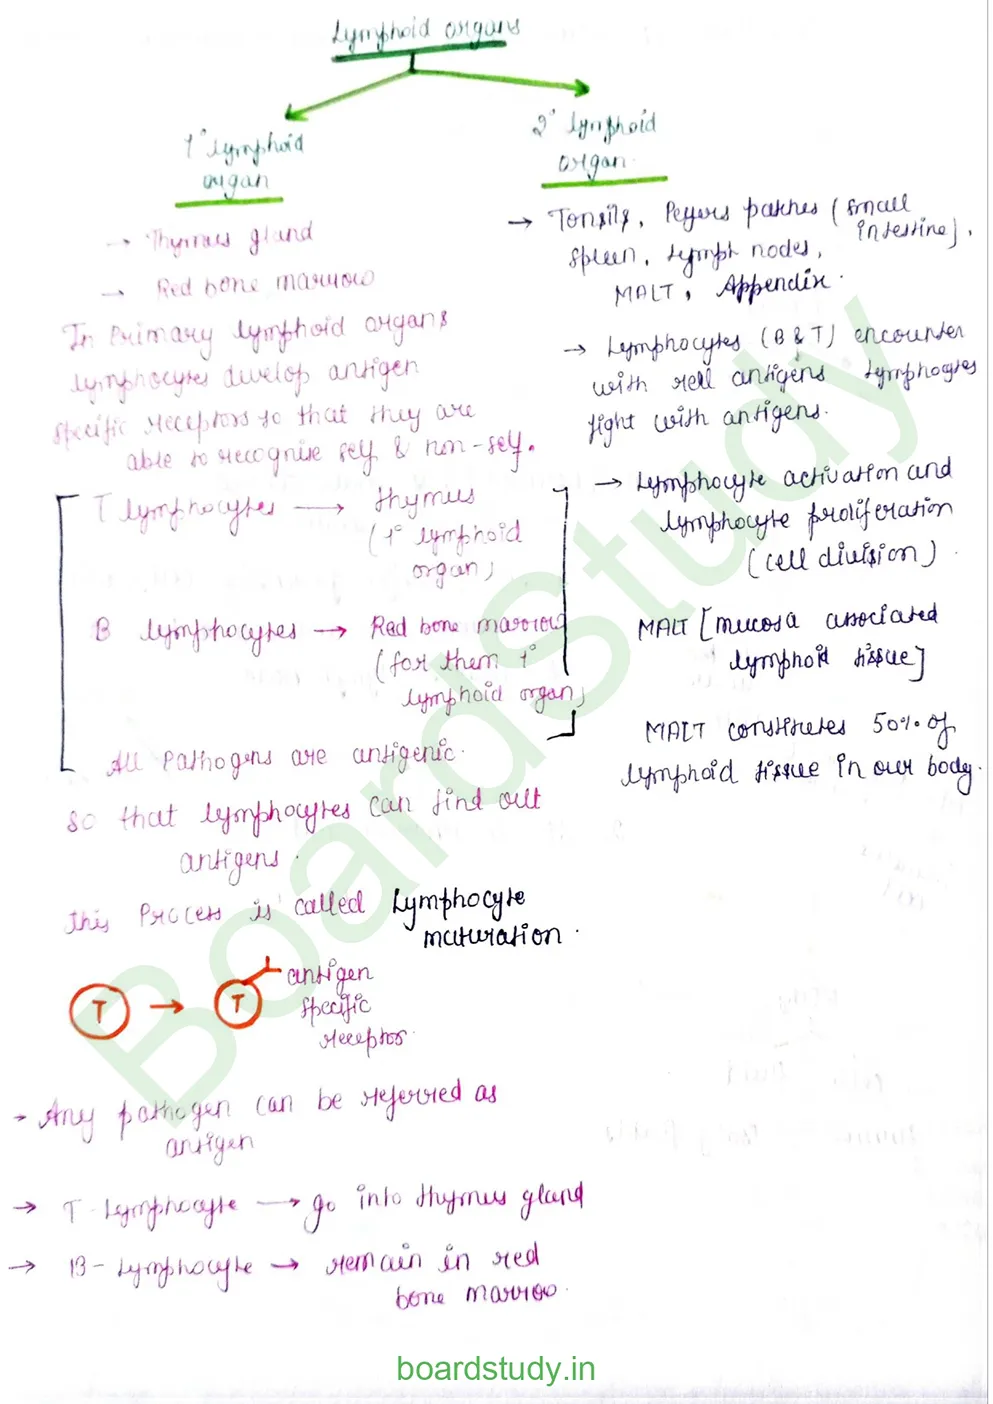 Lymphoid organs
1° lymphoid
organ
→ Thymus gland
→ Red bone marrow
In Primary lymphoid organs
lymphocytes develop antigen
specific receptors so that they are
able to recognise self & non-self.
T lymphocytes → thymus
(1° lymphoid
organ)
B lymphocytes → Red bone marrow
(for them 1°
lymphoid organ)
All Pathogens are antigenic.
so that lymphocytes can find out
antigens.
this Process is called Lymphocyte
maturation.
T → T antigen
specific
receptor
→ Any pathogen can be referred as
antigen
→ T-Lymphocyte → go into thymus gland
→ B-Lymphocyte → remain in red
bone marrow.
2° lymphoid
organ.
→ Tonsils, Peyers patches (small
intestine),
spleen, lymph nodes,
MALT, Appendix.
→ Lymphocytes (B & T) encounter
with antigens lymphocytes
fight with antigens.
→ Lymphocyte activation and
lymphocyte proliferation
(cell division).
MALT [mucosa associated
lymphoid tissue]
MALT constitutes 50% of
lymphoid tissue in our body.
Boardstudy
boardstudy.in